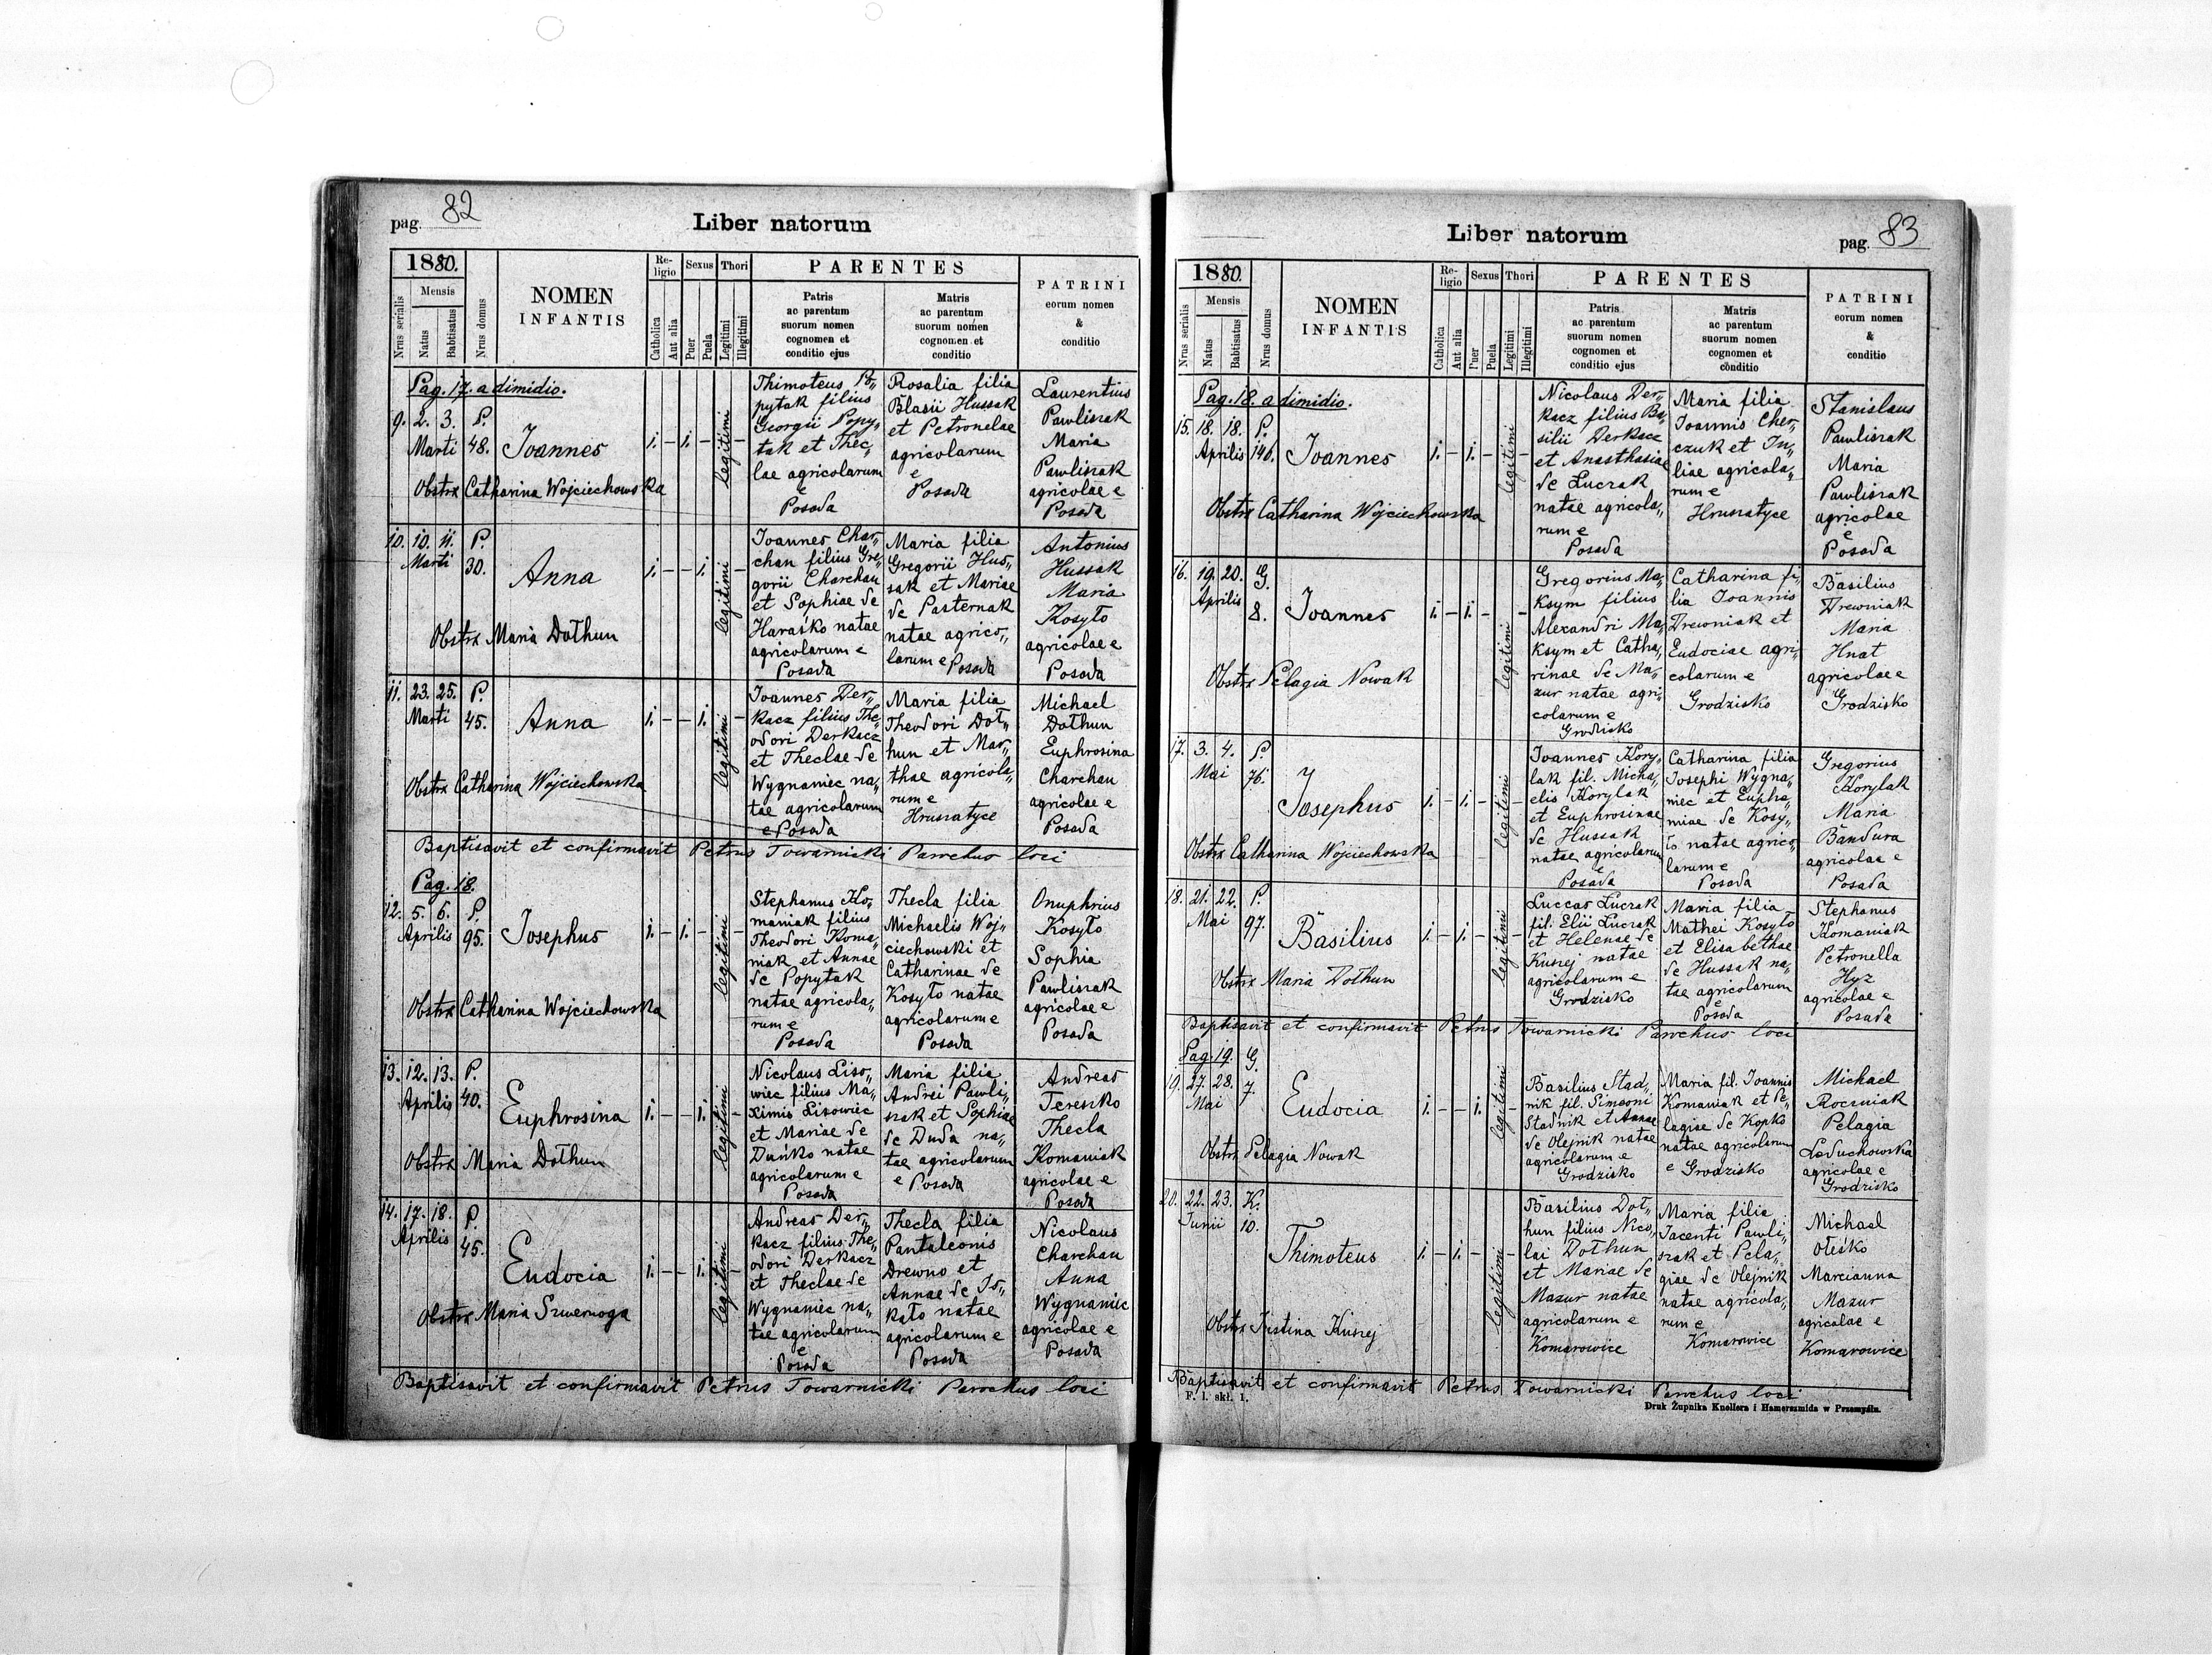 pag. 82
Liber natorum
1880.
Nrus serialis
Mensis
Natus
Babtisatus
Nrus domus
NOMEN
INFANTIS
Re-
ligio
Catholica
Aut alia
Sexus
Puer
Puela
Thori
Legitimi
Illegitimi
PARENTES
Patris
ac parentum
suorum nomen
cognomen et
conditio ejus
Matris
ac parentum
suorum nomen
cognomen et
conditio
PATRINI
eorum nomen
&
conditio
Pag. 17. a dimidio.
9. 2. 3. P.
Marti 48. Joannes 1. – 1. – legitimi –
Obstrx Catharina Wojciechowska
Thimoteus Po„
pytak filius
Georgii Popy„
tak et Thec„
lae agricolarum
e
Posada
Rosalia filia
Blasii Hussak
et Petronelae
agricolarum
e
Posada
Laurentius
Pawliszak
Maria
Pawliszak
agricolae e
Posada
10. 10. 11. P.
Marti 30. Anna 1. – – 1. legitimi –
Obstrx Maria Dothun
Joannes Char„
chan filius Gre„
gorii Charchan
et Sophiae de
Haraśko natae
agricolarum e
Posada
Maria filia
Gregorii Hus„
sak et Mariae
de Pasternak
natae agrico„
larum e Posada
Antonius
Hussak
Maria
Kosyło
agricolae e
Posada
11. 23. 25. P.
Marti 45. Anna 1. – – 1. legitimi –
Obstrx Catharina Wojciechowska
Joannes Der„
kacz filius The„
odori Derkacz
et Theclae de
Wygnaniec na„
tae agricolarum
e Posada
Maria filia
Theodori Dot„
hun et Mar„
thae agricola„
rum e
Hruszatyce
Michael
Dothun
Euphrosina
Charchan
agricolae e
Posada
Baptisavit et confirmavit Petrus Towarnicki Parochus loci
Pag. 18.
12. 5. 6. P.
Aprilis 95. Josephus 1. – 1. – legitimi –
Obstrx Catharina Wojciechowska
Stephanus Ko„
maniak filius
Theodori Koma„
niak et Annae
de Popytak
natae agricola„
rum e
Posada
Thecla filia
Michaelis Woj„
ciechowski et
Catharinae de
Kosyło natae
agricolarum e
Posada
Onuphrius
Kosyło
Sophia
Pawliszak
agricolae e
Posada
13. 12. 13. P.
Aprilis 40. Euphrosina 1. – – 1. legitimi –
Obstrx Maria Dothun
Nicolaus Liso„
wiec filius Ma„
ximis Lisowiec
et Mariae de
Dańko natae
agricolarum e
Posada
Maria filia
Andrei Pawli„
szak et Sophiae
de Duda na„
tae agricolarum
e Posada
Andreas
Tereszko
Thecla
Komaniak
agricolae e
Posada
14. 17. 18. P.
Aprilis 45. Eudocia 1. – – 1. legitimi –
Obstrx Maria Szwernoga
Andreas Der„
kacz filius The„
odori Derkacz
et Theclae de
Wygnaniec na„
tae agricolarum
e
Posada
Thecla filia
Pantaleonis
Drewno et
Annae de
natae
agricolarum e
Posada
Nicolaus
Charchan
Anna
Wygnaniec
agricolae e
Posada
Baptisavit et confirmavit Petrus Towarnicki Parochus loci
Liber natorum
pag. 83
1880.
Nrus serialis
Mensis
Natus
Babtisatus
Nrus domus
NOMEN
INFANTIS
Re-
ligio
Catholica
Aut alia
Sexus
Puer
Puela
Thori
Legitimi
Illegitimi
PARENTES
Patris
ac parentum
suorum nomen
cognomen et
conditio ejus
Matris
ac parentum
suorum nomen
cognomen et
conditio
PATRINI
eorum nomen
&
conditio
Pag. 18. a dimidio.
15. 18. 18. P.
Aprilis 146. Joannes 1. – 1. – legitimi –
Obstrx Catharina Wojciechowska
Nicolaus Der„
kacz filius Ba„
silii Derkacz
et Anasthasiae
de Luczak
natae agricola„
rum e
Posada
Maria filia
Joannis Cher„
czuk et Ju„
liae agricola„
rum e
Hruszatyce
Stanislaus
Pawliszak
Maria
Pawliszak
agricolae
e
Posada
16. 19. 20. G.
Aprilis 8. Joannes 1. – 1. – legitimi –
Obstrx Pelagia Nowak
Gregorius Ma„
ksym filius
Alexandri Ma„
ksym et Catha„
rinae de Ma„
zur natae agri„
colarum e
Grodzisko
Catharina fi„
lia Joannis
Drewniak et
Eudociae agri„
colarum e
Grodzisko
Basilius
Drewniak
Maria
Hnat
agricolae e
Grodzisko
17. 3. 4. P.
Mai 76. Josephus 1. – 1. – legitimi –
Obstrx Catharina Wojciechowska
Joannes Kory„
lak fil. Micha„
elis Korylak
et Euphrosinae
de Hussak
natae agricolarum
e
Posada
Catharina filia
Josephi Wygna„
niec et Euphe„
miae de Kosy„
ło natae agrico„
larum e
Posada
Gregorius
Korylak
Maria
Bandura
agricolae e
Posada
18. 21. 22. P.
Mai 97. Basilius 1. – 1. – legitimi –
Obstrx Maria Dothun
Luccas Luczak
fil. Elii Luczak
et Helenae de
Kuszej natae
agricolarum e
Grodzisko
Maria filia
Mathei Kosyło
et Elisabethae
de Hussak na„
tae agricolarum
e
Posada
Stephanus
Komaniak
Petronella
Hyz
agricolae e
Posada
Baptisavit et confirmavit Petrus Towarnicki Parochus loci
Pag. 19.
19. 27. 28. G.
Mai 7. Eudocia 1. – – 1. legitimi –
Obstrx Pelagia Nowak
Basilius Stad„
nik fil. Simeoni
Stadnik et Annae
de Olejnik natae
agricolarum e
Grodzisko
Maria fil. Joannis
Komaniak et Pe„
lagiae de Kopko
natae agricolarum
e Grodzisko
Michael
Roczniak
Pelagia
Leduchowska
agricolae e
Grodzisko
20. 22. 23. K.
Junii 10. Thimoteus 1. – 1. – legitimi –
Obstrx Justina Kuszej
Basilius Dot„
hun filius Nico„
lai Dothun
et Mariae de
Mazur natae
agricolarum e
Komarowice
Maria filia
Jacenti Pawli„
szak et Pela„
giae de Olejnik
natae agricola„
rum e
Komarowice
Michael
Oleśko
Marcianna
Mazur
agricolae e
Komarowice
Baptisavit et confirmavit Petrus Towarnicki Parochus loci
F. l. skł. 1.
Druk Żupnika Knollera i Hamerszmida w Przemyślu.